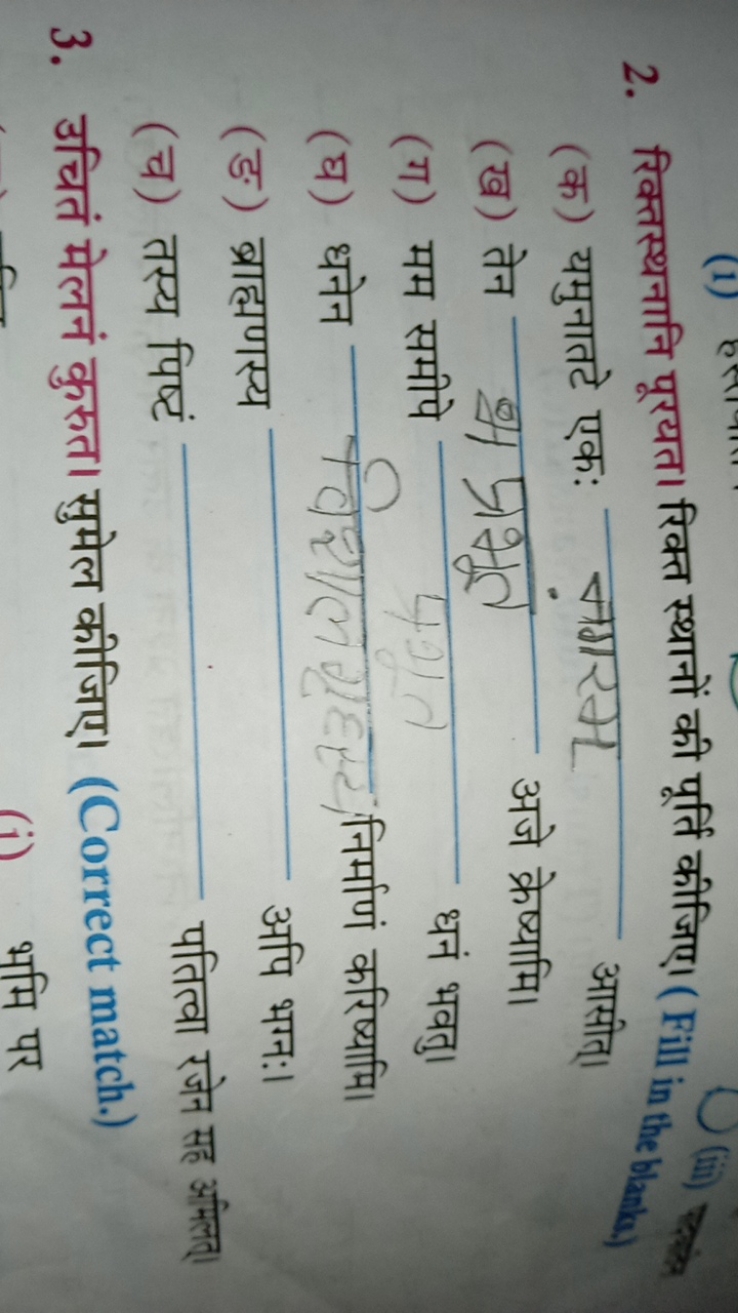 (i)
(iii)
2. रिक्तस्थनानि पूरयत। रिक्त स्थानों की पूर्ति कीजिए। ( Fill in the blanks.)
(क) यमुनातटे एकः नगरम् आसीत्।
(ख) तेन प्रभूत अजे क्रेष्यामि।
(ग) मम समीपे प्रभूत धनं भवतु।
(घ) धनेन विशाल निर्माणं करिष्यामि।
(ङ) ब्राह्मणस्य अपि भग्नः।
(च) तस्य पिष्टं पतित्वा रजेन सह अमिलत्।
3. उचितं मेलनं कुरुत। सुमेल कीजिए। (Correct match.)
(i) भूमि पर